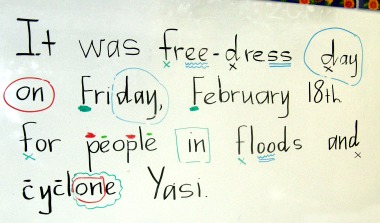 It was free-dress day
on Friday, February 18th
for people in floods and
cyclone Yasi.